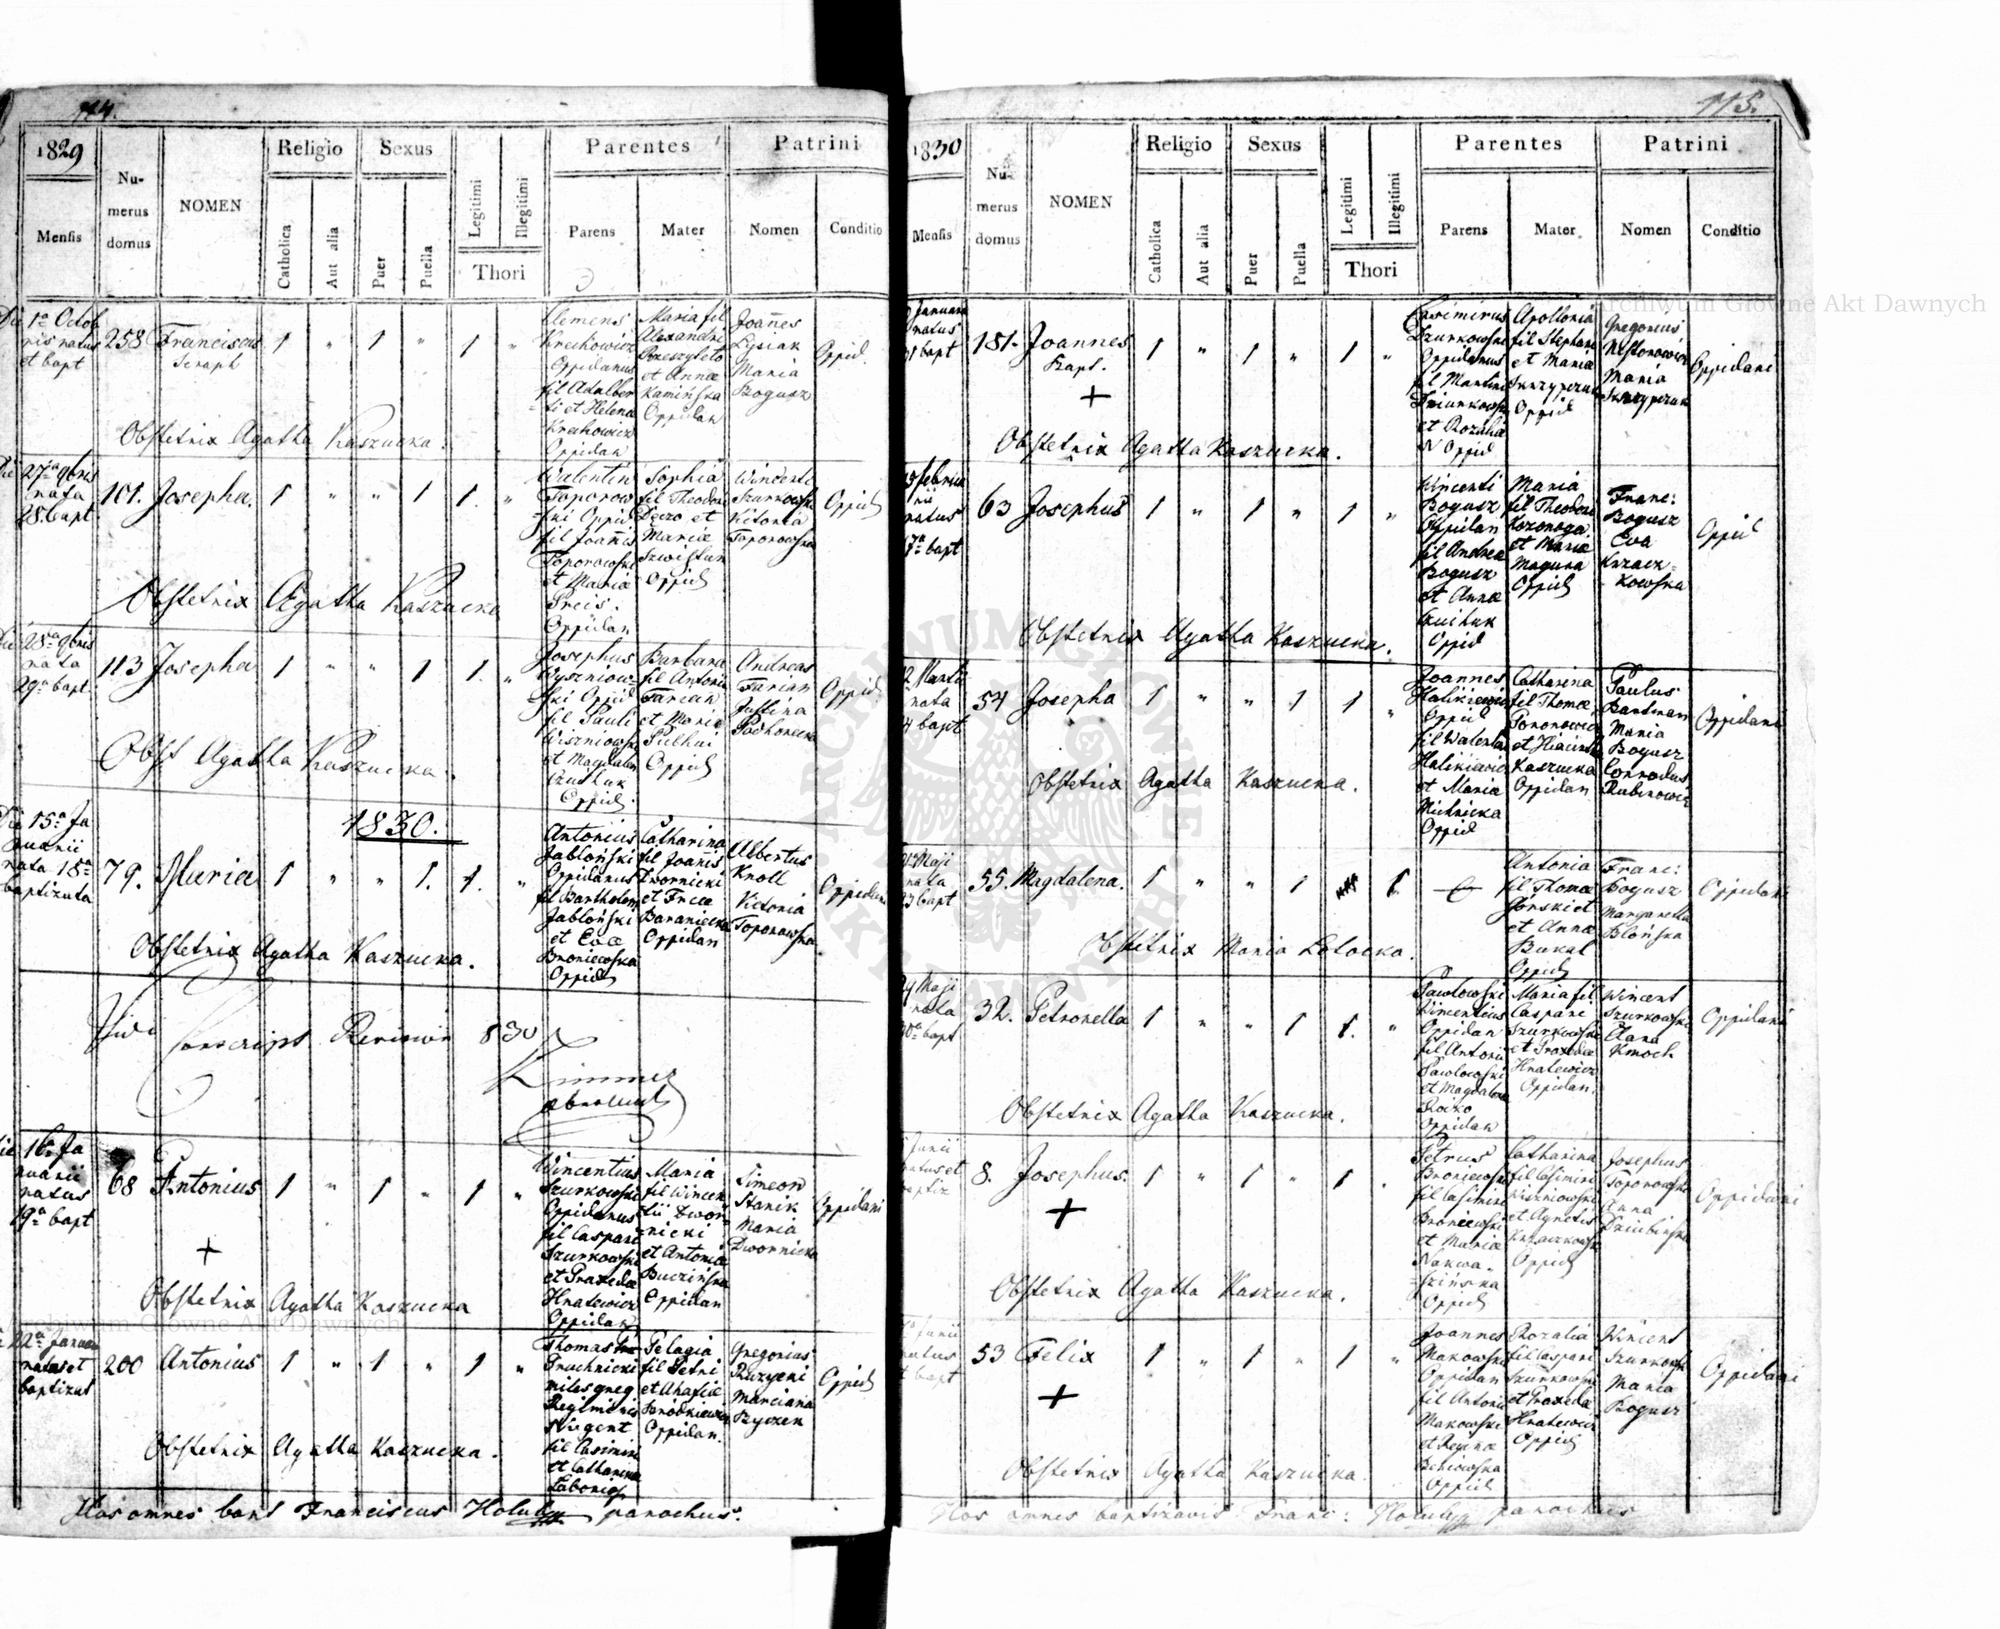 114.
1829
Mensis
Numerus domus
NOMEN
Religio
Catholica
Aut alia
Sexus
Puer
Puella
Legitimi
Illegitimi
Thori
Parentes
Parens
Mater
Patrini
Nomen
Conditio
Die 1a Octob
ris natus
et bapt
258
Franciscus
Seraph
1 " 1 " 1 "
Clemens
Krechowicz
Oppidanus
fil Adalber
-ti et Helena
Krechowicz
Oppidan
Maria fil
Alexandri
et Anna
Kamińska
Oppidan
Joañes
Lysiak
Maria
Bogusz
Oppid.
Obstetrix Agatha Kaszucka.
Die 27a 9bris
nata
28. bapt
101.
Josepha.
1 " " 1 1. "
Walentin
Toporow
-ski Oppid
fil Joañis
Toporowski
et Maria
Preis.
Oppidan
Sophia
fil Theodori
et
Maria
Oppid
Wincenti
Szurkowski
Victoria
Toporowska
Oppid
Obstetrix Agatha Kaszucka
Die 28a 9bris
nata
29a bapt.
113
Josepha
1 " " 1 1. "
Josephus
Wyszniow-
-ski Oppid
fil Pauli
Wiszniowski
et Magdalen
Oppid.
Barbara
fil Antonii
Farian
et Maria
Oppid
Andreas
Farian
Justina
Podhorecka
Oppid.
Obst Agatha Kaszucka.
1830.
Die 15a Ja
nuarii
nata 18a
baptizata
79.
Maria
1 " " 1. 1. "
Antonius
Jabłoński
Oppidanus
fil Bartholom
Jabłoński
et Eva
Broniewska
Oppid
Catharina
fil Joañis
Dwornicki
et
Baraniecka
Oppidan
Albertus
Knoll
Victoria
Toporowska
Oppidani
Obstetrix Agatha Kaszucka.
Vidi Conscript Revision 830
Die 16a Ja
nuarii
natus
19a bapt
68
Antonius
1 " 1 " 1 "
Wincentius
Szurkowski
Oppidanus
fil Caspari
Szurkowski
et Praxeda
Hnatewicz
Oppidan
Maria
fil Wincen
tii Dwor-
-nicki
et Antonia
Buczińska
Oppidan
Simeon
Stanik
Maria
Dwornicka
Oppidani
+
Obstetrix Agatha Kaszucka
22a Januar
natus et
baptizat
200
Antonius
1 " 1 " 1 "
Thomas
Gruchnicki
miles greg
Regiminis
Nugent
fil Casimiri
et Catharina
Pelagia
fil Petri
et Ahafia
Oppidan.
Gregorius
Ruzycki
Marciana
Oppid
Obstetrix Agatha Kaszucka.
Hos omnes bapt Franciscus Hołuby parochus.
115.
1830
Mensis
Numerus domus
NOMEN
Religio
Catholica
Aut alia
Sexus
Puer
Puella
Legitimi
Illegitimi
Thori
Parentes
Parens
Mater
Patrini
Nomen
Conditio
Januarii
natus
bapt
181.
Joannes
Bapt.
1 " 1 " 1 "
+
Casimirus
Szurkowski
Oppidanus
fil Martini
Szurkowski
et Rozalia
N Oppid
Apollonia
fil Stephani
et Maria
Skrzypczuk
Oppid
Gregorius
Nestorowicz
Maria
Skrzypczuk
Oppidani
Obstetrix Agatha Kaszucka.
Februa
rii
natus
17a bapt
63
Josephus
1 " 1 " 1 "
Wincenti
Bogusz
Oppidan
fil Andrea
Bogusz
et Anna
Oppid
Maria
fil Theodori
Kozonoga
et Maria
Magura
Oppid
Franc:
Bogusz
Eva
Krzacz-
-kowska
Oppid
Obstetrix Agatha Kaszucka.
Marti
nata
bapt
54
Josepha
1 " " 1 1 "
Joannes
Halikiewicz
Oppid
fil Walenti
Halikiewicz
et Maria
Michnicka
Oppid
Catharina
fil Thoma
et
Kaszucka
Oppidan
Paulus
Bartman
Maria
Bogusz
Conradus
Rubinowicz
Oppidani
Obstetrix Agatha Kaszucka.
Maji
nata
bapt
55.
Magdalena.
1 " " 1 1
Antonia
fil Thoma
Górski et
et Anna
Bukal
Oppid
Franc:
Bogusz
Margaretha
Błońska
Oppidani
Obstetrix Maria Lotocka.
29 Maji
nata
30a bapt
32.
Petronella
1 " " 1 1. "
Pawłowski
Vincentius
Oppidan
fil Antonii
Pawłowski
et Magdalena
Oppidan
Maria fil
Caspari
Szurkowski
et Praxeda
Hnatewicz
Oppidan.
Wincent
Szurkowski
Anna
Kmoch
Oppidani
Obstetrix Agatha Kaszucka.
Junii
natus et
baptiz
8.
Josephus.
1 " 1 " 1 .
+
Petrus
Broniewski
fil Casimiri
Broniewski
et Maria
Nakwa-
-szińska
Oppid
Catharina
fil Casimiri
Wiszniowski
et Agnetis
Krzaczkowsk
Oppid
Josephus
Toporowski
Anna
Dziubińska
Oppidani
Obstetrix Agatha Kaszucka.
Junii
natus
et bapt
53
Felix
1 " 1 " 1 "
+
Joannes
Makowski
Oppidan
fil Antonii
Makowski
et Regina
Oppid
Rozalia
fil Caspari
Szurkowski
et Praxeda
Hnatewicz
Oppid
Wincent
Szurkowski
Maria
Bogusz
Oppidani
Obstetrix Agatha Kaszucka.
Hos omnes baptizavit Franc: Hołuby parochus
Archiwum Główne Akt Dawnych
Archiwum Główne Akt Dawnych
ARCHIWUM GŁÓWNE AKT DAWNYCH